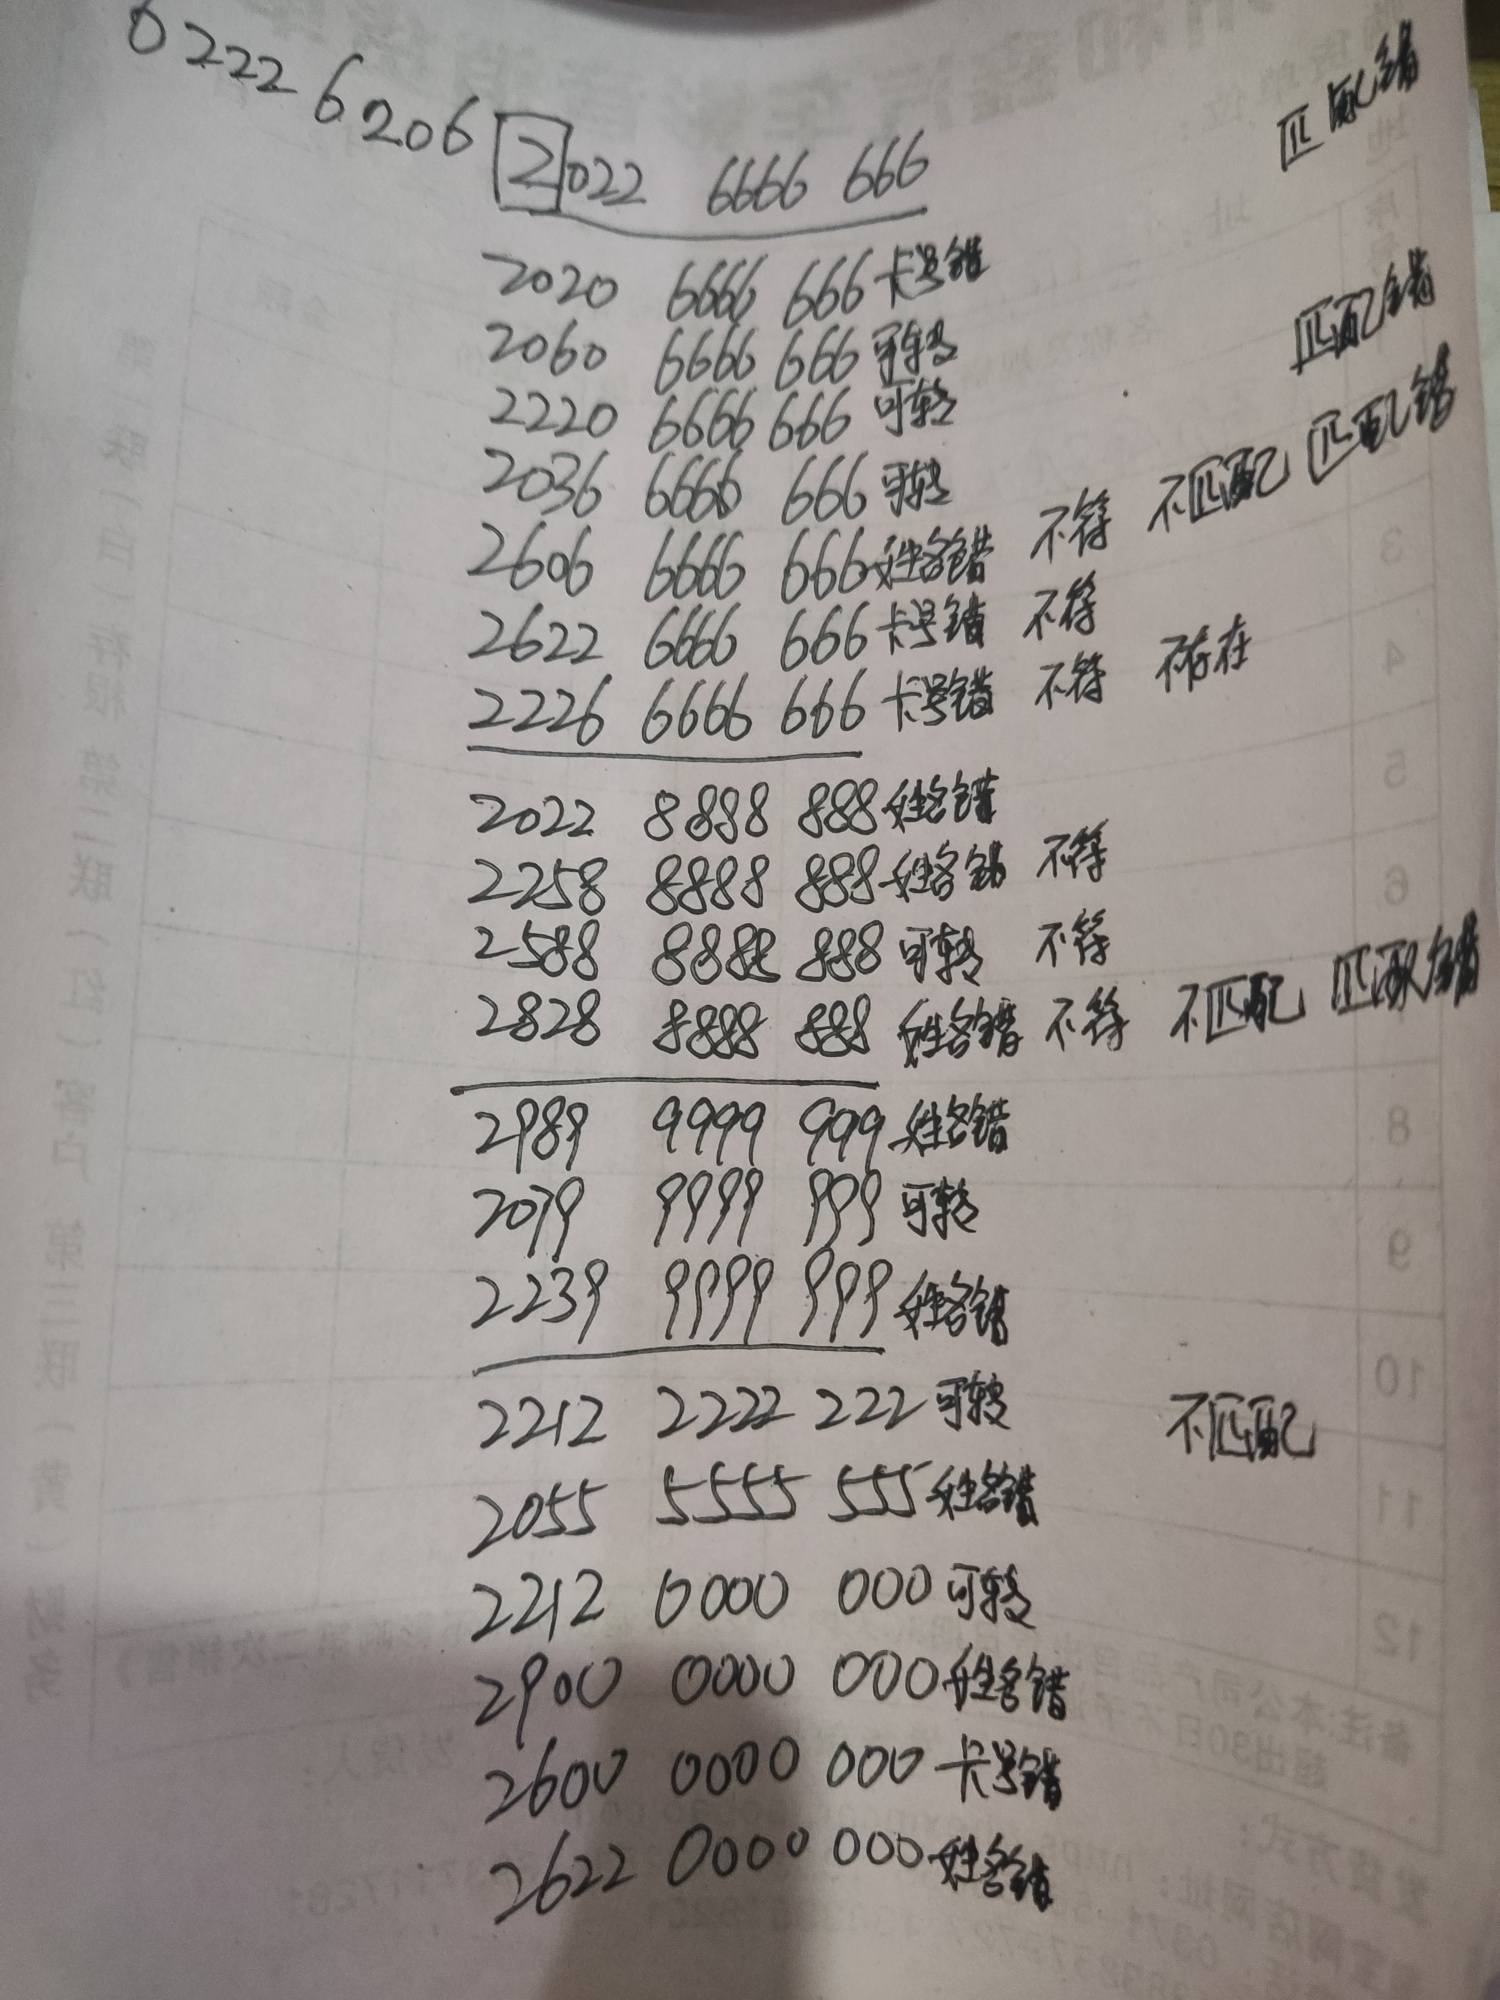 02226206 2022 6666 666
匹配错
2020 6666 666 卡号错
2060 6666 666 可转
匹配错
2220 6666 666 可转
2036 6666 666 可转
2606 6666 666 姓名错 不符 不匹配 匹配错
2622 6666 666 卡号错 不符
2226 6666 666 卡号错 不符 不存在
2022 8888 888 姓名错
2258 8888 888 姓名错 不符
2588 8888 888 可转 不符
2828 8888 888 姓名错 不符 不匹配 匹配错
2989 9999 999 姓名错
2079 9999 999 可转
2239 9999 999 姓名错
2212 2222 222 可转 不匹配
2055 5555 555 姓名错
2212 0000 000 可转
2900 0000 000 姓名错
2600 0000 000 卡号错
2622 0000 000 姓名错